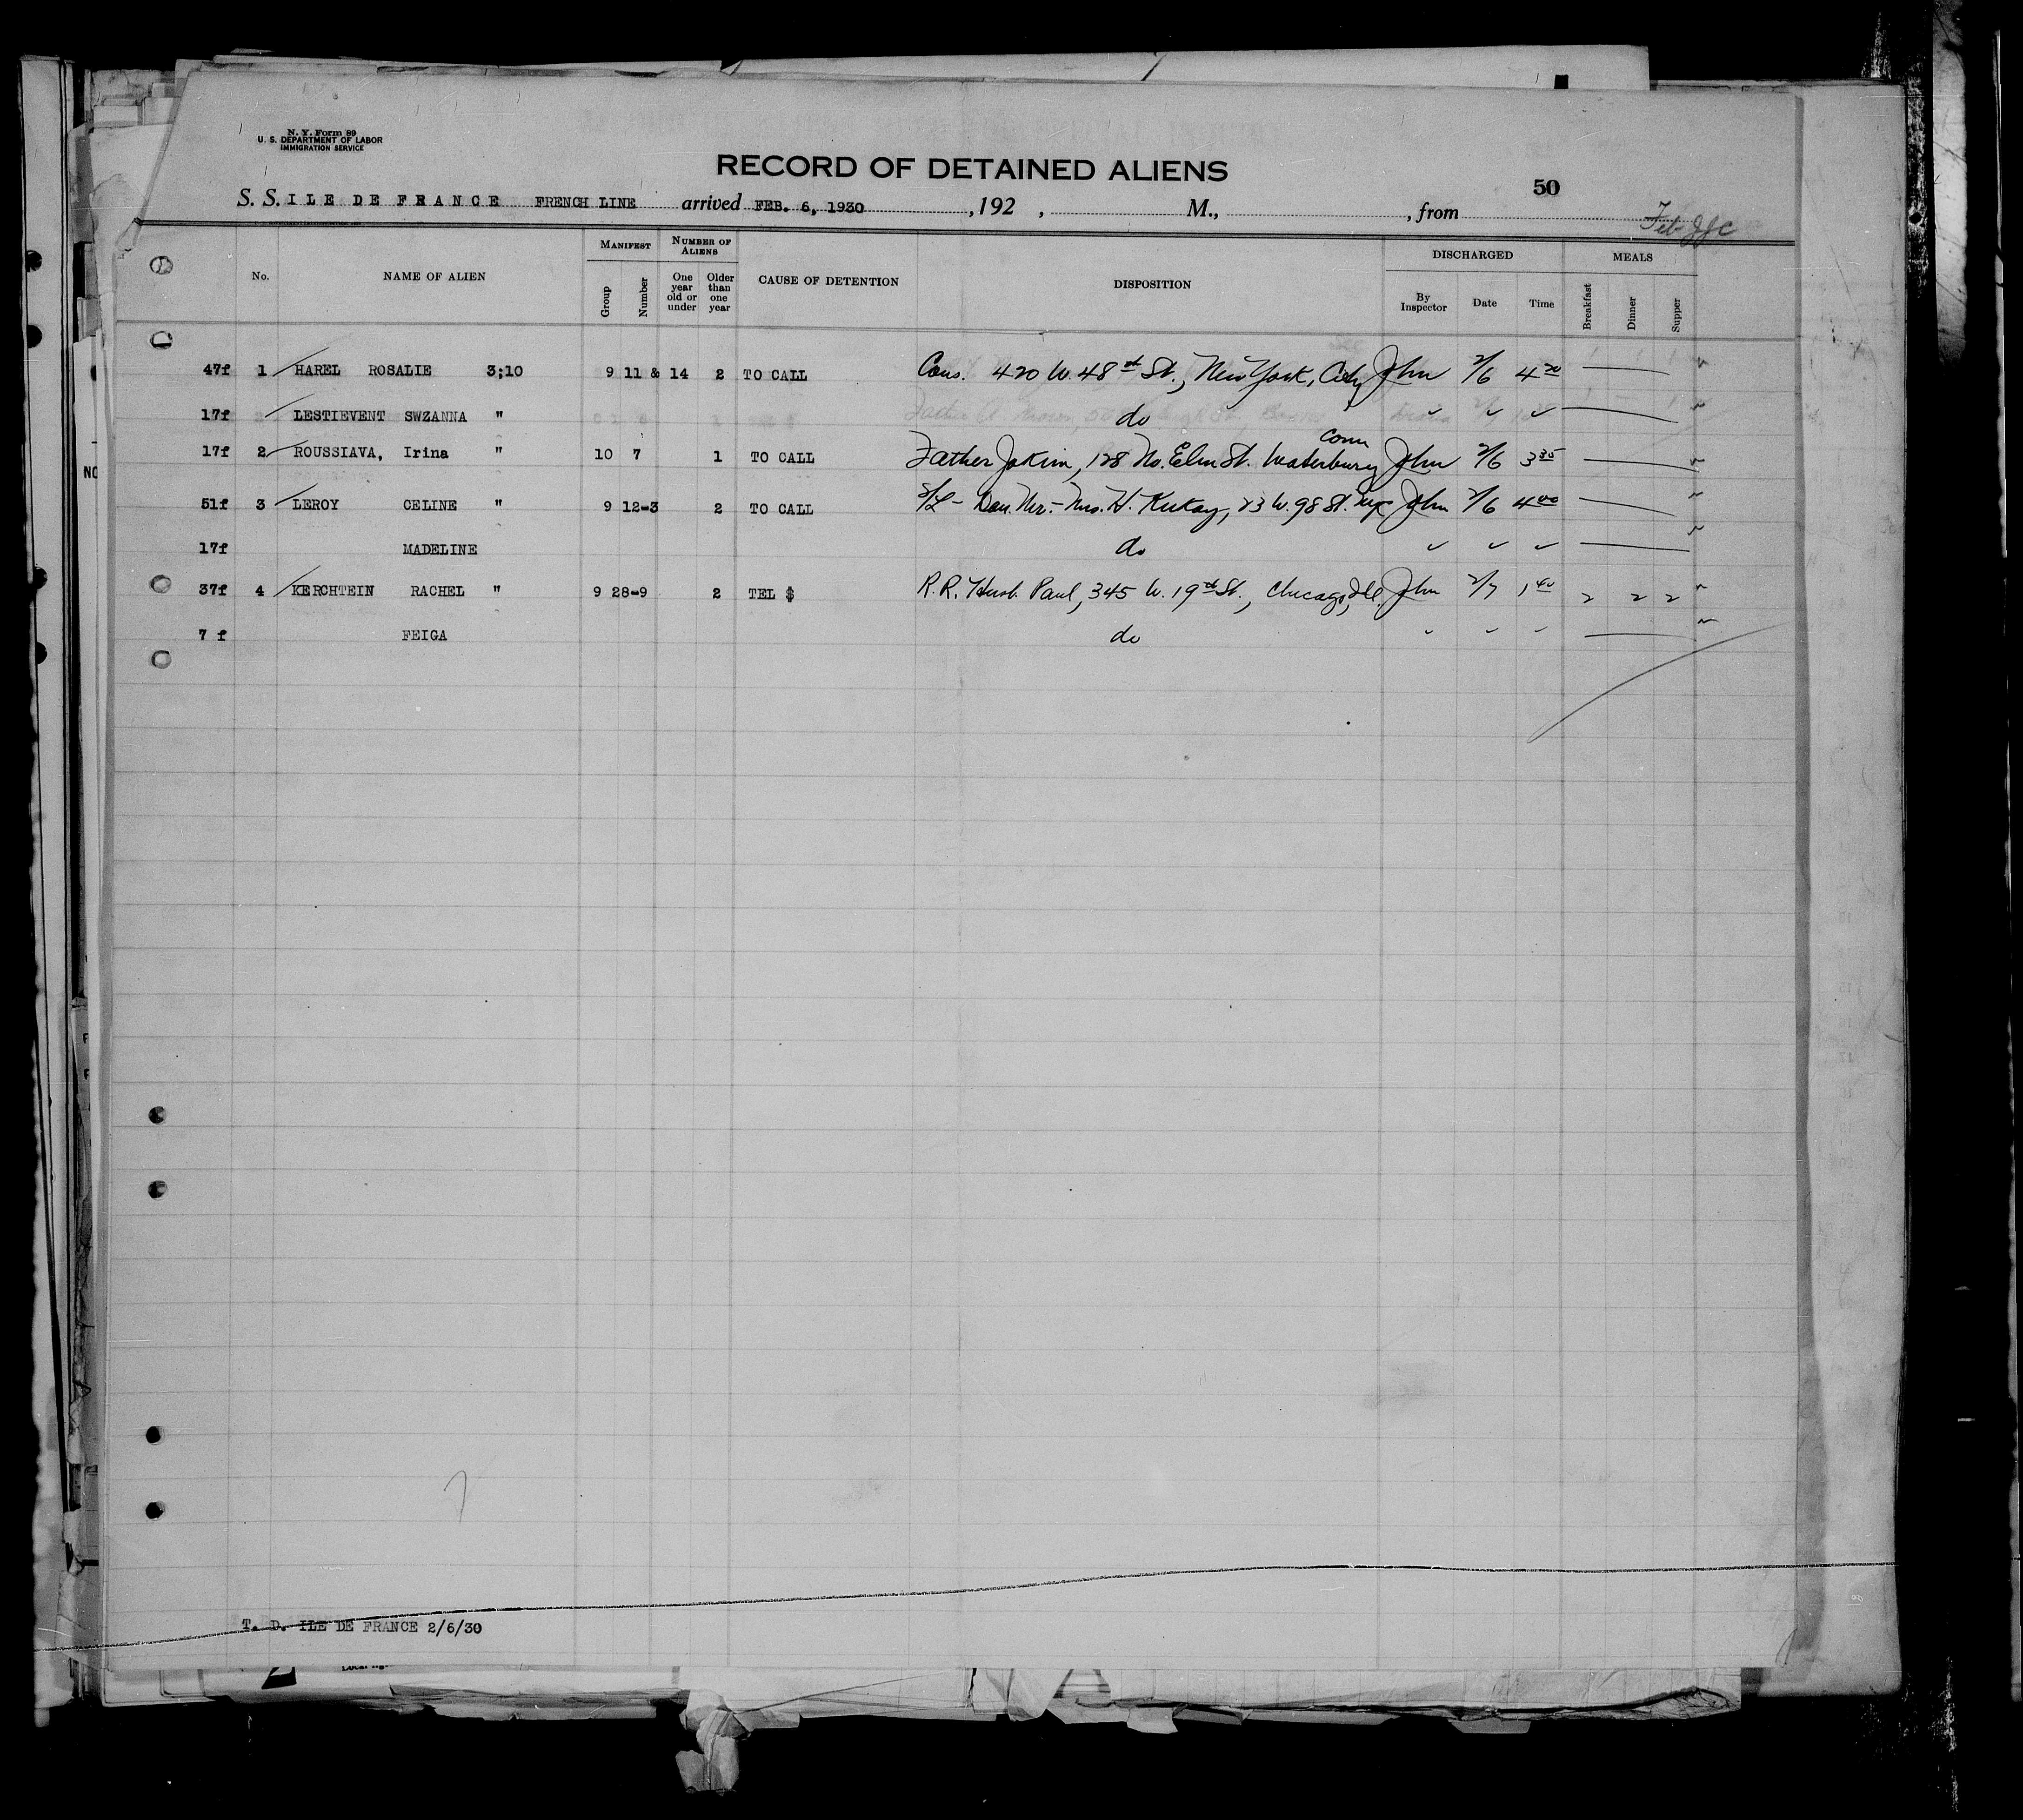 N. Y. Form 89
U. S. DEPARTMENT OF LABOR
IMMIGRATION SERVICE
RECORD OF DETAINED ALIENS
50
S. S. ILE DE FRANCE FRENCH LINE arrived FEB. 6, 1930 , 192 , M., , from
No. NAME OF ALIEN MANIFEST Group Number NUMBER OF ALIENS One year old or under Older than one year CAUSE OF DETENTION DISPOSITION DISCHARGED By Inspector Date Time MEALS Breakfast Dinner Supper
47f 1 HAREL ROSALIE 3;10 9 11 & 14 2 TO CALL Cous. 420 W. 48th St., New York, City John 2/6 4 20
17f LESTIEVENT SWZANNA " do
17f 2 ROUSSIAVA, Irina " 10 7 1 TO CALL Father Jakim, 128 No. Elm St. Waterbury Conn John 2/6 3 35
51f 3 LEROY CELINE " 9 12-3 2 TO CALL Mrs. H. 23 W. 98 St. NYC John 2/6 4 00
17f MADELINE do
37f 4 KERCHTEIN RACHEL " 9 28-9 2 TEL $ R.R. Husb Paul, 345 W. 19th St., Chicago, Ill. John 2/7 1 40 2 2 2
7 f FEIGA do
T. D. ILE DE FRANCE 2/6/30